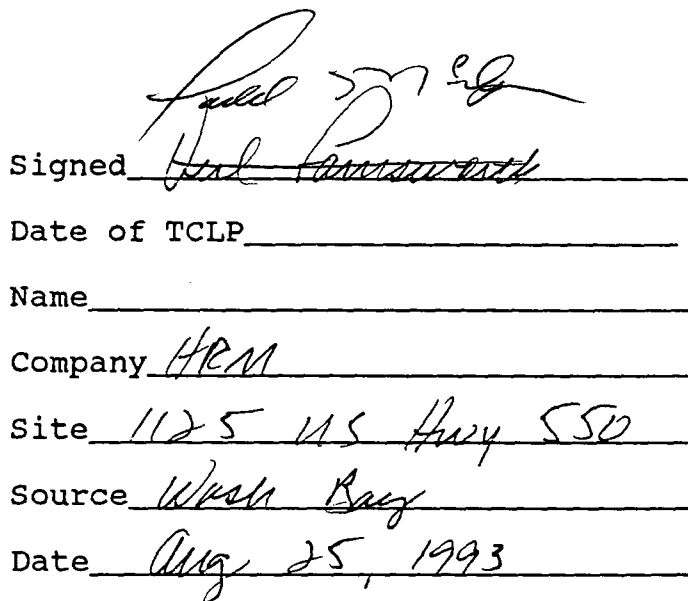 Signed
Date of TCLP
Name
Company HRM
Site 1125 US Hwy 550
Source Wash Bay
Date Aug 25, 1993